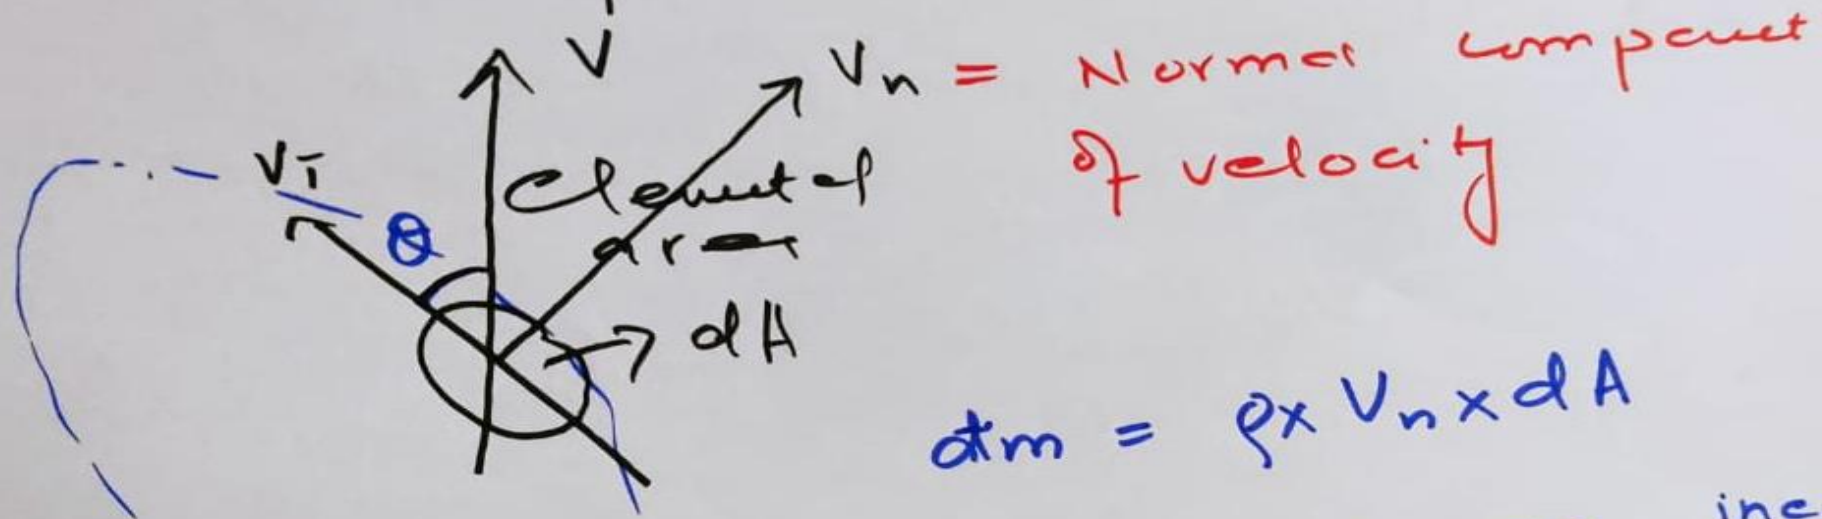 V
Vn = Normal component
of velocity
VT
Elemental
area
θ
dA
dm = ρ x Vn x dA
inc